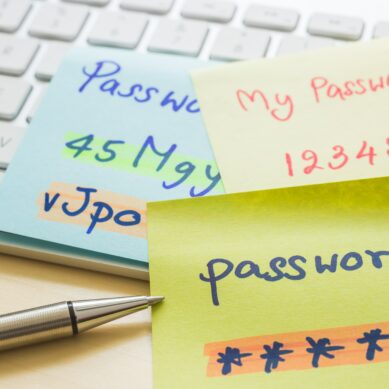 Passwo
45 Mgy
vJpo
My Passwo
1234
passwor
****